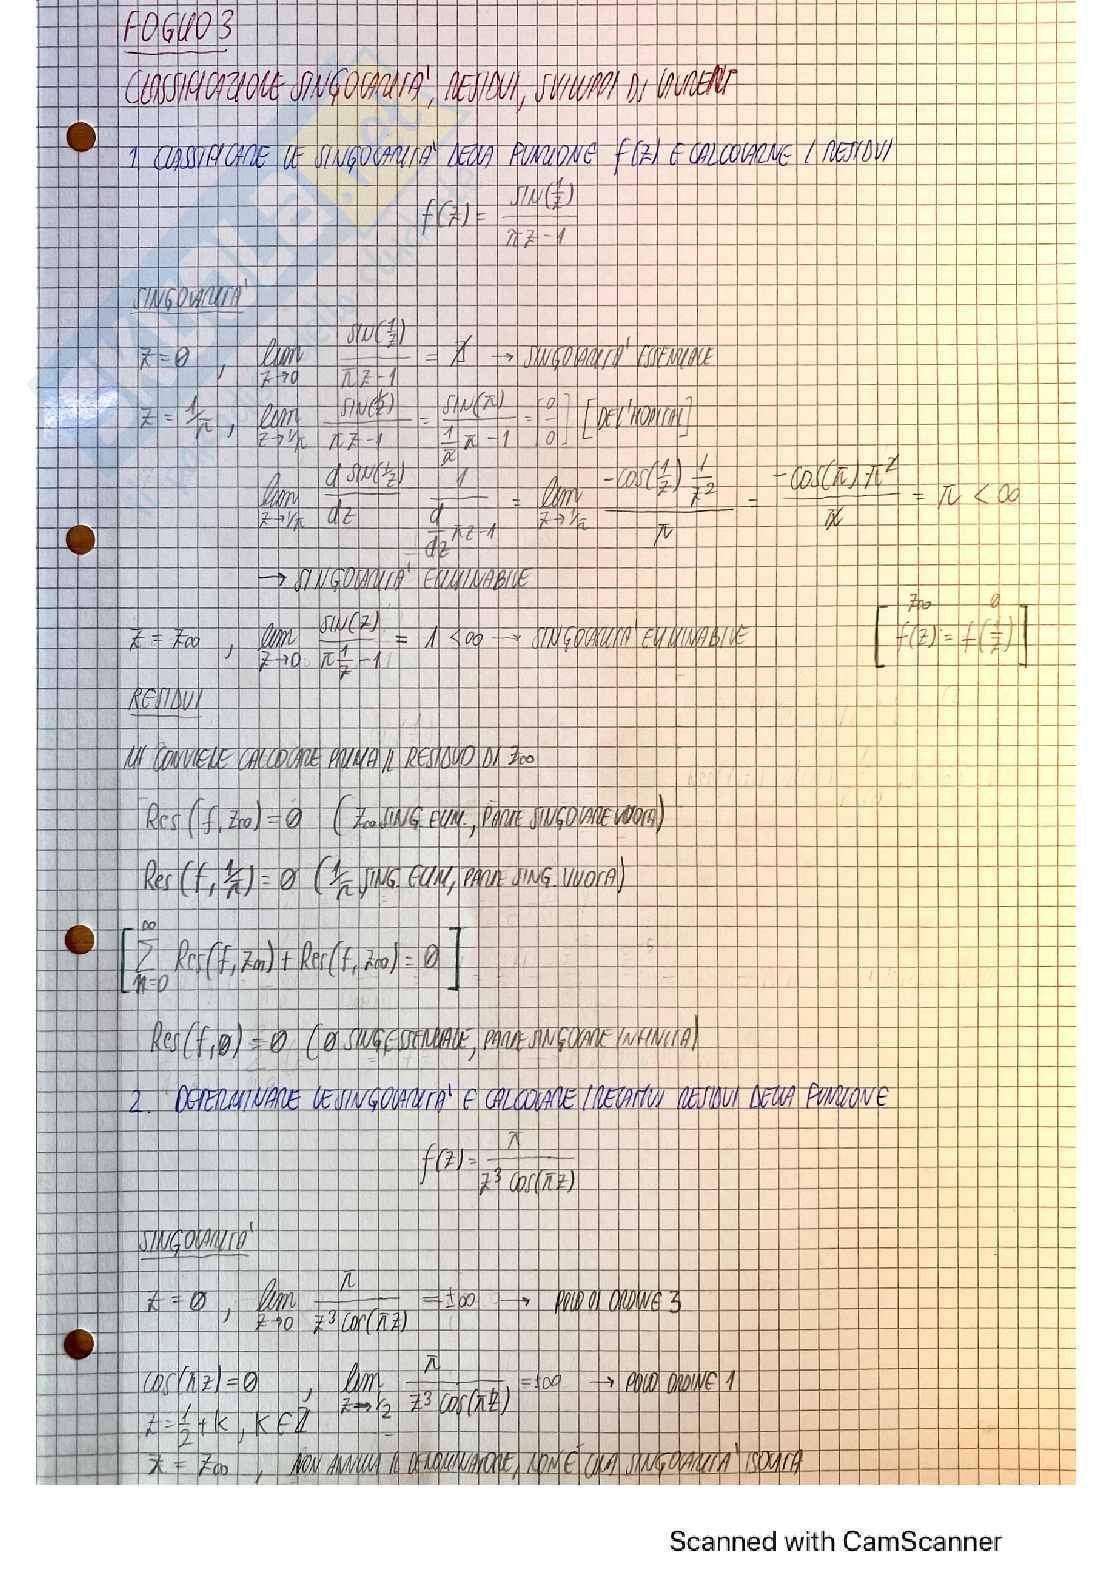 FOGLIO 3
CLASSIFICAZIONE SINGOLARITA', RESIDUI, SVILUPPI DI LAURENT
1 CLASSIFICARE LE SINGOLARITA' DELLA FUNZIONE f(z) E CALCOLARNE I RESIDUI
f(z) = SIN(1/z) / πz-1
SINGOLARITA'
z = 0 , lim z→0 SIN(1/z) / πz-1 = ∄ → SINGOLARITA' ESSENZIALE
z = 1/π , lim z→1/π SIN(1/z) / πz-1 = SIN(π) / 1/π π-1 = [0/0] [DE L'HOPITAL]
lim z→1/π d SIN(1/z) / dz 1 / d/dz πz-1 = lim z→1/π -cos(1/z) 1/z² / π = -cos(π) π² / π = π < ∞
→ SINGOLARITA' ELIMINABILE
z = z∞ , lim z→0 SIN(z) / π 1/z -1 = 1 < ∞ → SINGOLARITA' ELIMINABILE [ z∞ 0 f(z) = f(1/z) ]
RESIDUI
MI CONVIENE CALCOLARE PRIMA IL RESIDUO DI z∞
Res(f, z∞) = 0 ( z∞ SING ELIM., PARTE SINGOLARE VUOTA)
Res(f, 1/π) = 0 ( 1/π SING. ELIM, PARTE SING. VUOTA)
[ ∞ Σ n=0 Res(f, zn) + Res(f, z∞) = 0 ]
Res(f, 0) = 0 ( 0 SING ESSENZIALE, PARTE SINGOLARE INFINITA)
2. DETERMINARE LE SINGOLARITA' E CALCOLARE I RELATIVI RESIDUI DELLA FUNZIONE
f(z) = π / z³ cos(πz)
SINGOLARITA'
z = 0 , lim z→0 π / z³ cos(πz) = ±∞ → POLO DI ORDINE 3
cos(πz) = 0 , lim z→1/2 π / z³ cos(πz) = ±∞ → POLO ORDINE 1
z = 1/2 + K , K ∈ ℤ
z = z∞ , NON ANNULLA IL DENOMINATORE, NON E' UNA SINGOLARITA' ISOLATA
Scanned with CamScanner